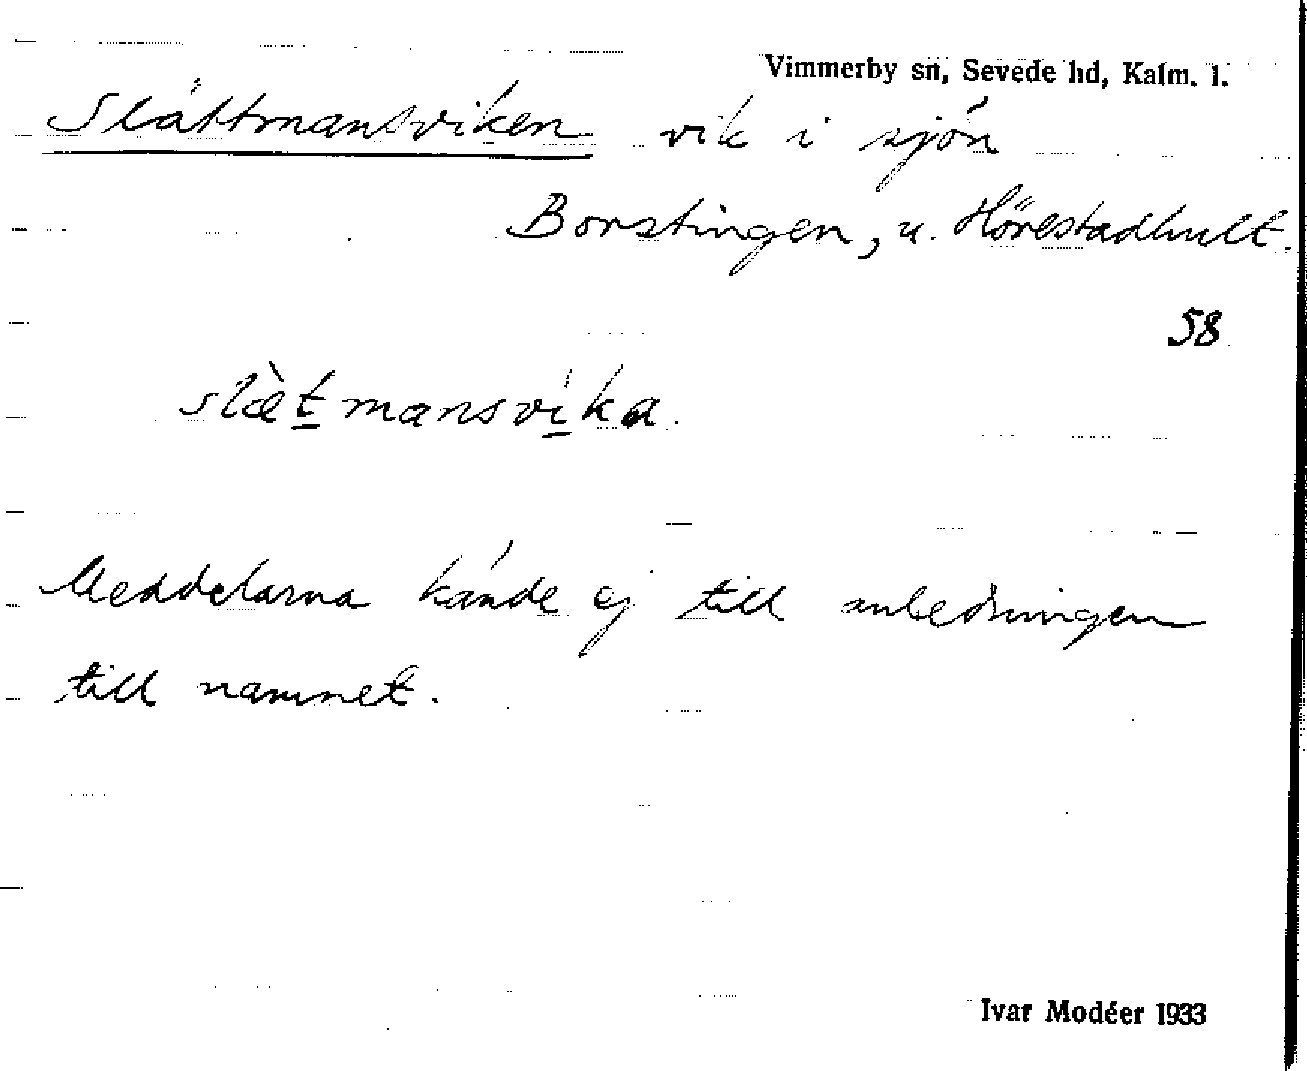 Vimmerby sn, Sevede hd, Kalm. l.
Slättmansviken vik i sjön
Borstingen, u. Hörestadhult.
58
slæ̀t̲mansvi̲ka.
Meddelarna kände ej till anledningen
till namnet.
Ivar Modéer 1933